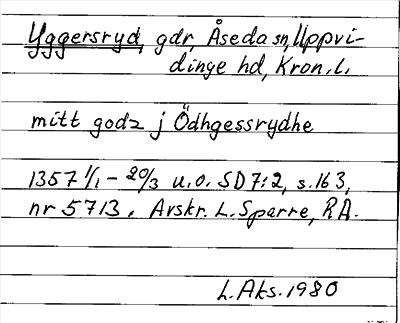 Yggersryd, gdr, Åseda sn, Uppvi-
dinge hd, Kron. l.
mitt godz j Ödhgessrydhe
1357 1/1 - 20/3 u.o. SD 7:2, s. 163,
nr 5713. Avskr. L. Sparre, RA.
L. Aks. 1980